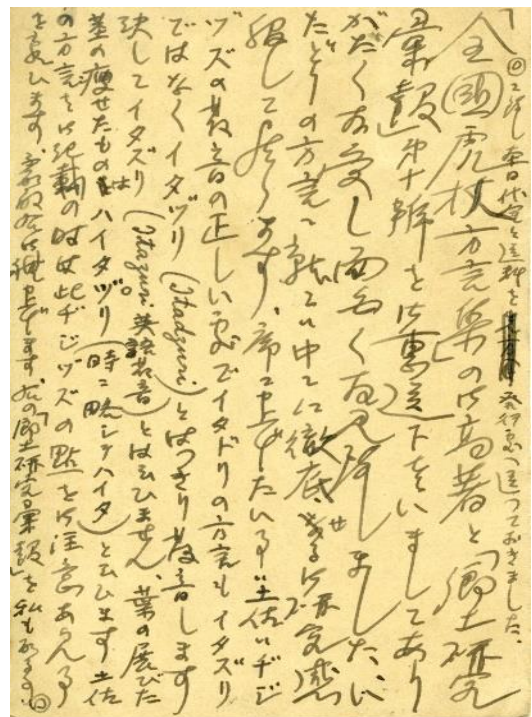 ◎二伸 本日代金と送料を発行所へ送つておきました、
全國虎杖方言集の御高著と「郷土研究
彙報」第十輯を御恵送下さいましてあり
がたく拝受し面白く拝見致しました、い
たどりの方言に就ての中々に徹底せる御研究感
服して居ります、序に上げたい事は土佐はヂジ
ヅズの発音の正しい処でイタドリの方言もイタズリ
ではなくイタヅリ (Itadzuri) とはつきり発音します
決してイタズリ (Itazuri 英語発音) とは云ひません、葉の展びた
茎の痩せたものはハイタヅリ (時ニ略シテハイタ) と云ひます 土佐
の方言を御記載の時は此ヂジヅズの點を御注意あらん事
を願ひます、 右の「郷土研究彙報」を私も ◎